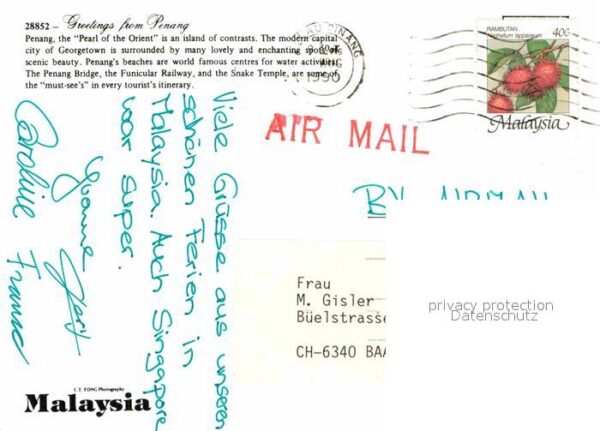 28852 – Greetings from Penang
Penang, the "Pearl of the Orient" is an island of contrasts. The modern capital
city of Georgetown is surrounded by many lovely and enchanting spots of
scenic beauty. Penang's beaches are world famous centres for water activities.
The Penang Bridge, the Funicular Railway, and the Snake Temple, are some of
the "must-see's" in every tourist's itinerary.
PINANG
1990
RAMBUTAN
Nephelium lappaceum
40¢
Malaysia
AIR MAIL
BY AIRMAIL
Viele Grüsse aus unseren
schönen Ferien in
Malaysia. Auch Singapore
war super.
Yvonne
Caroline
Frau
M. Gisler
Büelstrasse
CH-6340 BAA
privacy protection
Datenschutz
C.T. FONG Photography
Malaysia